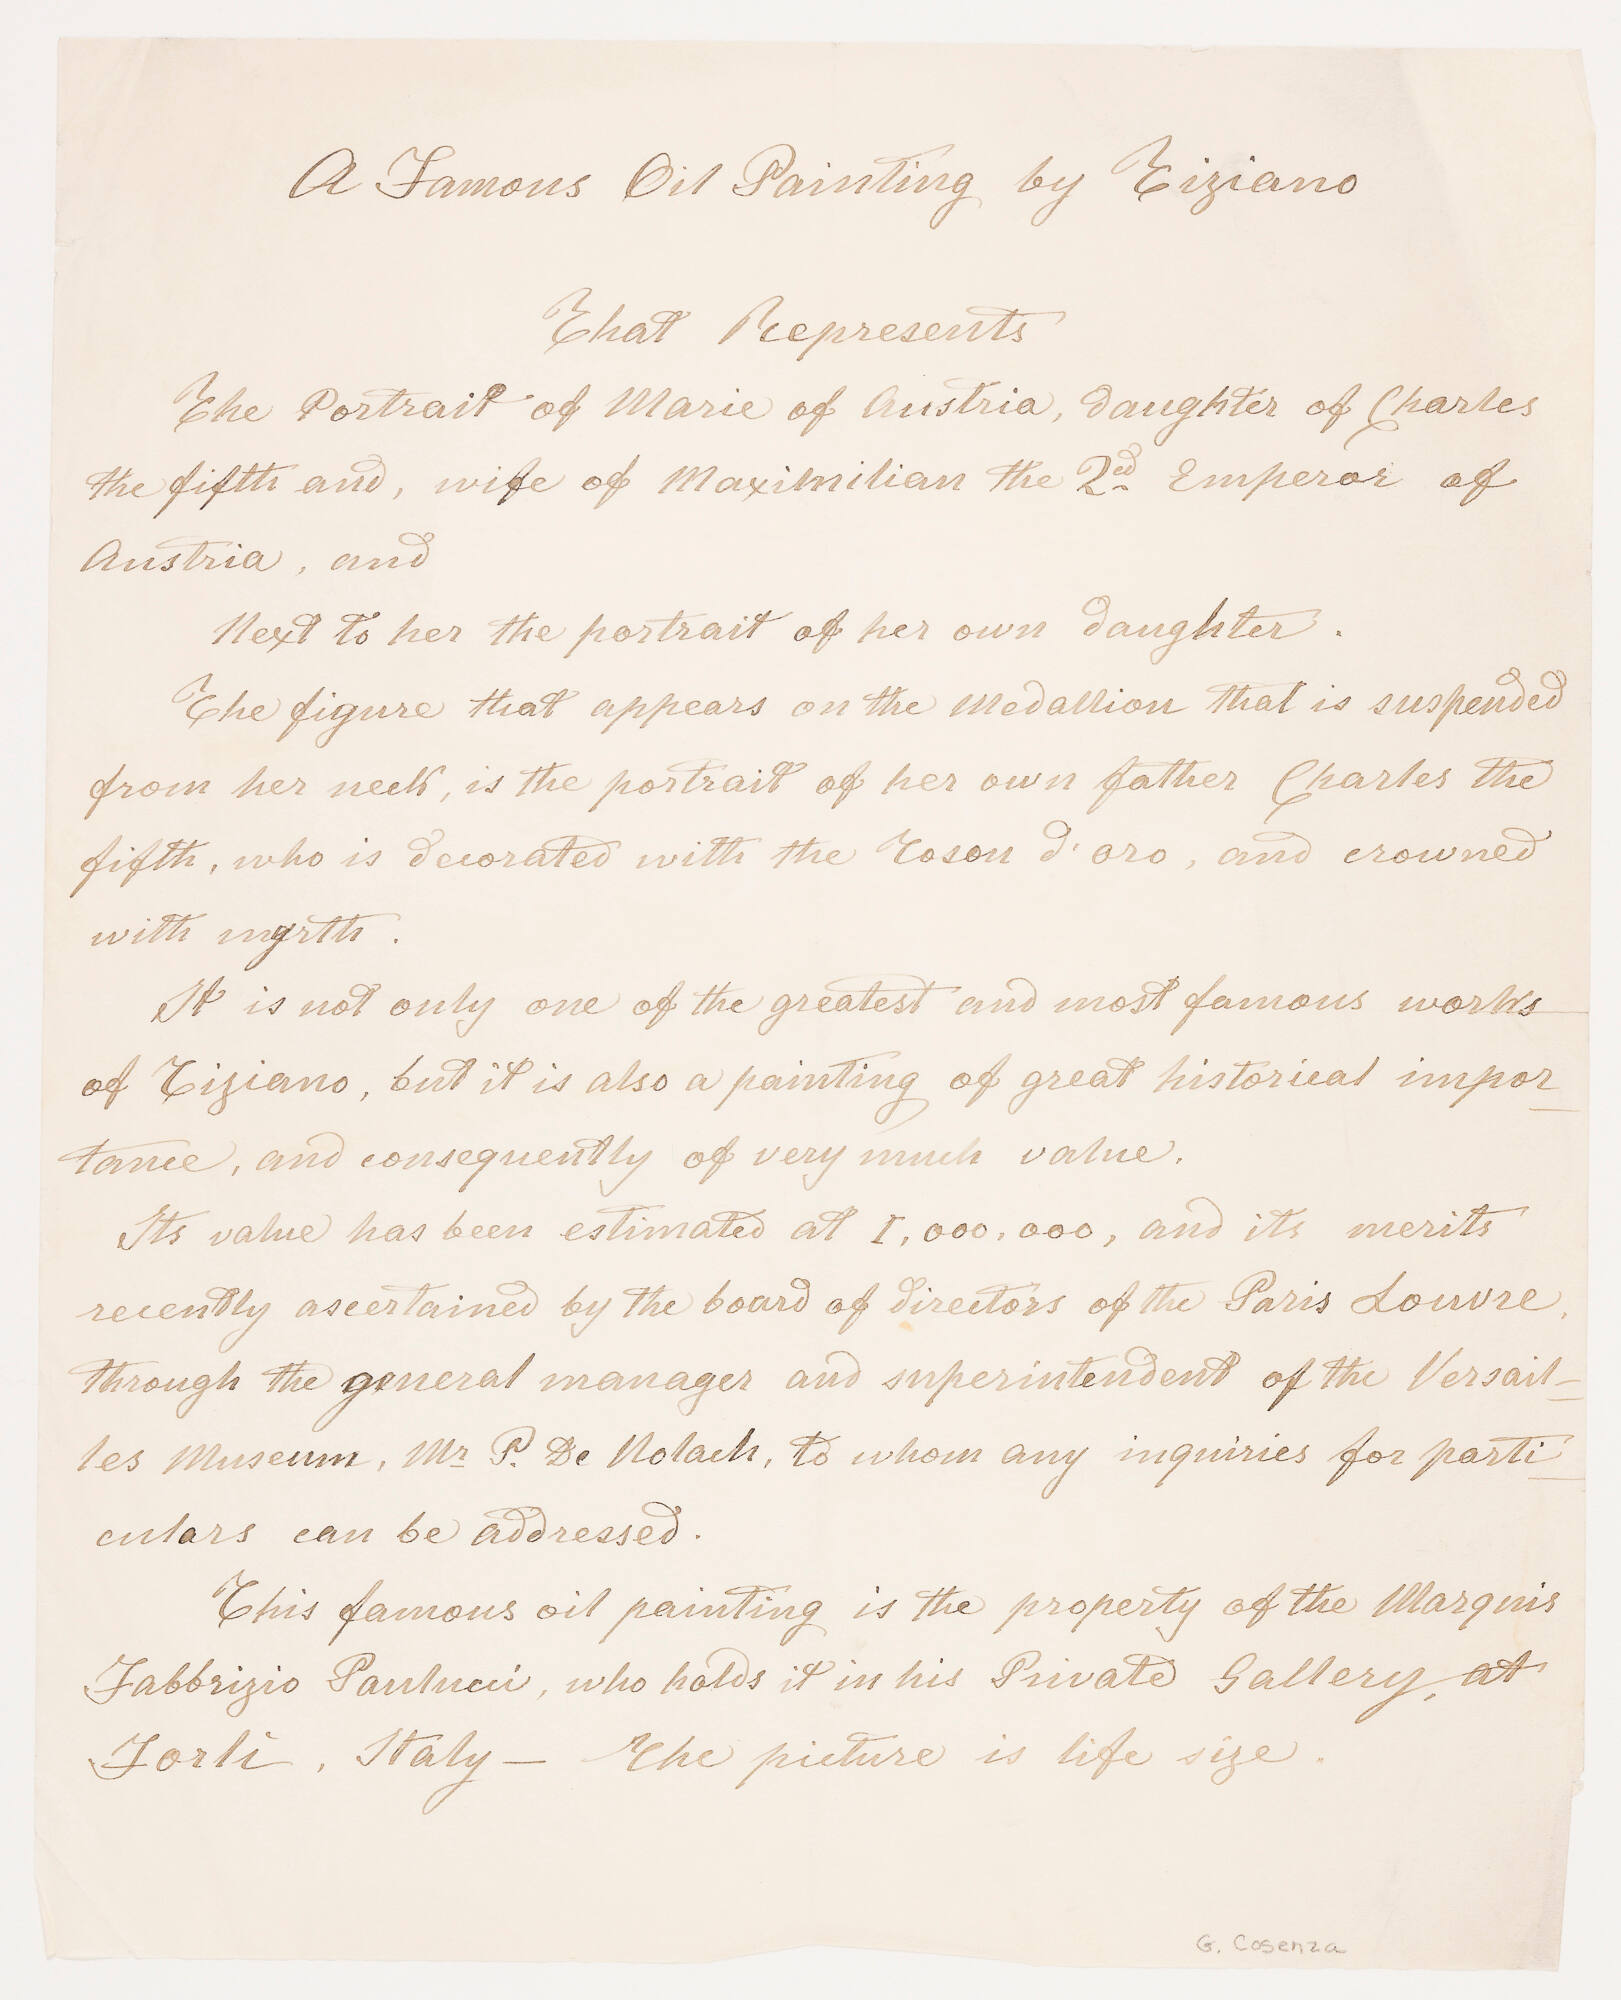 A Famous Oil Painting by Tiziano
That Represents
The Portrait of Marie of Austria, daughter of Charles
the fifth and, wife of Maximilian the 2ed Emperor of
Austria, and
Next to her the portrait of her own daughter.
The figure that appears on the Medallion that is suspended
from her neck, is the portrait of her own father Charles the
fifth, who is decorated with the Toson d'oro, and crowned
with myrth.
It is not only one of the greatest and most famous works
of Tiziano, but it is also a painting of great historical impor-
tance, and consequently of very much value.
Its value has been estimated at 1,000,000, and its merits
recently ascertained by the board of directors of the Paris Louvre,
through the general manager and superintendent of the Versail-
les Museum, Mr P. De Nolach, to whom any inquiries for parti-
culars can be addressed.
This famous oil painting is the property of the Marquis
Fabbrizio Paulucci, who holds it in his Private Gallery, at
Forlì, Italy — The picture is life size.
G. Cosenza